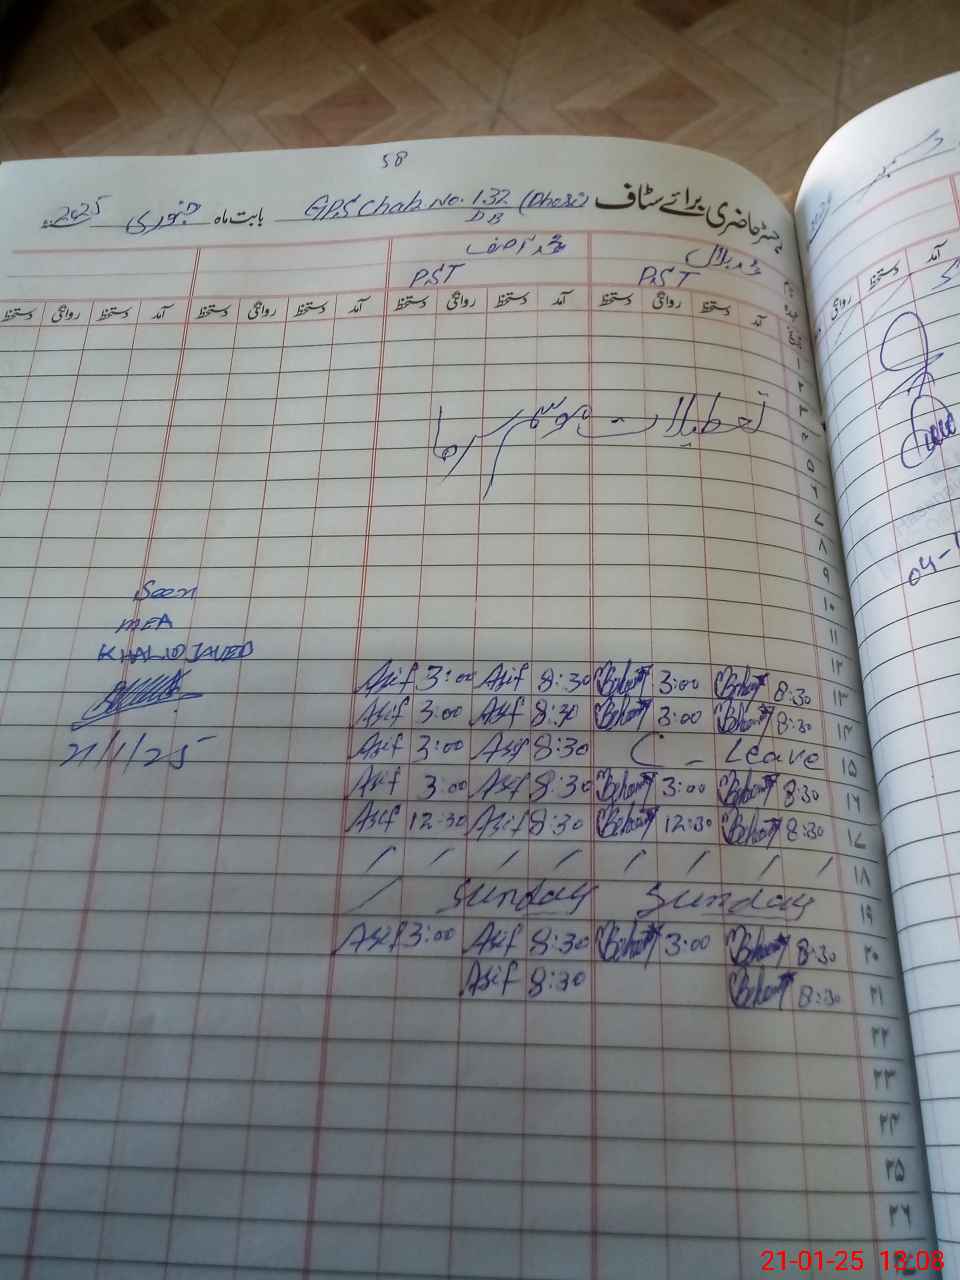 58
رجسٹر حاضری برائے سٹاف GPS Chak No. 132/DB (Dhori) بابت ماہ جنوری 2025ء
محمد بلال محمد آصف
PST PST
آمد دستخط روانگی دستخط آمد دستخط روانگی دستخط آمد دستخط روانگی دستخط آمد دستخط روانگی دستخط
۱
۲
۳
تعطیلات موسم سرما
۴
۵
۶
۷
۸
۹
۱۰
۱۱
۱۲
Seen
MEA
KHALID JAVED
21/1/25
Asif 3:00 Asif 8:30 3:00 8:30 ۱۳
Asif 3:00 Asif 8:30 3:00 8:30 ۱۴
Asif 3:00 Asif 8:30 C - Leave ۱۵
Asif 3:00 Asif 8:30 3:00 8:30 ۱۶
Asif 12:30 Asif 8:30 12:30 8:30 ۱۷
/ / / / / / / / ۱۸
/ Sunday Sunday ۱۹
Asif 3:00 Asif 8:30 3:00 8:30 ۲۰
Asif 8:30 8:30 ۲۱
۲۲
۲۳
۲۴
۲۵
۲۶
21-01-25 13:08